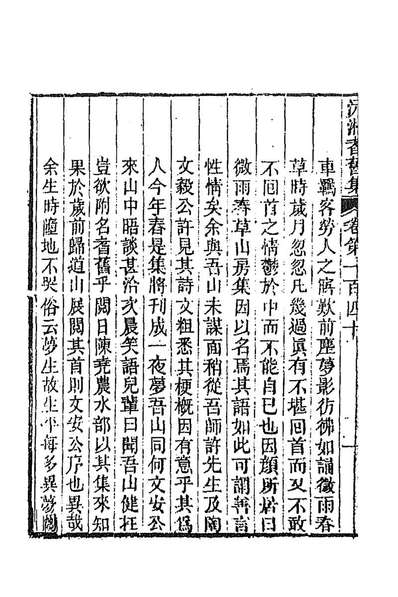 沅湘耆舊集 卷第一百四十 一
車羈客勞人之寤歎前塵夢影彷彿如誦微雨春
草時歲月忽忽凡幾過眞有不堪回首而又不敢
不回首之情鬱於中而不能自已也因顏所居曰
微雨春草山房集因以名焉其語如此可謂善言
性情矣余與吾山未謀面稍從吾師許先生及陶
文毅公許見其詩文粗悉其梗概因有意乎其爲
人今年春是集將刊成一夜夢吾山同何文安公
來山中晤談甚洽次晨笑語兒輩曰聞吾山健在
豈欲附名耆舊乎閱日陳堯農水部以其集來知
果於歲前歸道山展閱其首則文安公序也異哉
余生時墮地不哭俗云夢生故生平每多異夢閱